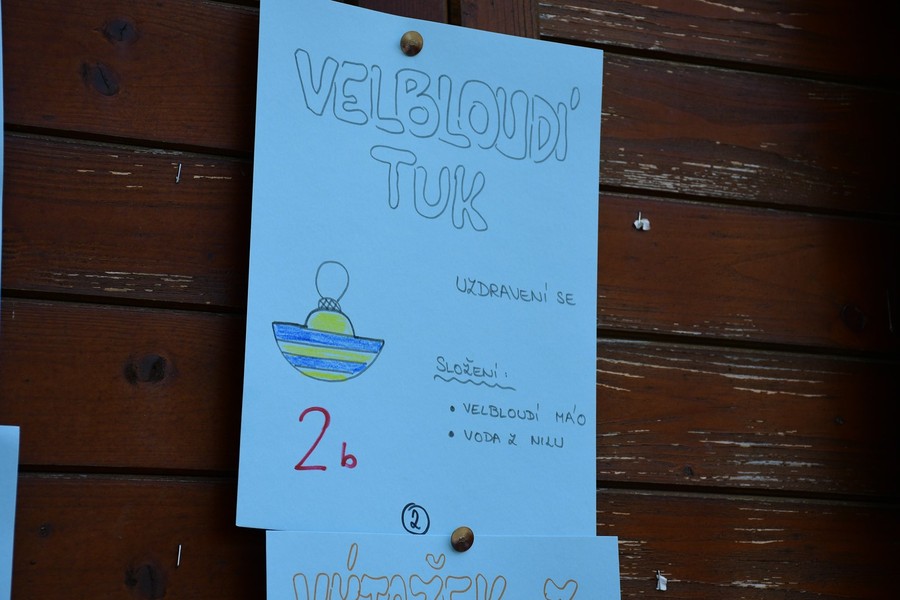 VELBLOUDÍ
TUK
UZDRAVENÍ SE
SLOŽENÍ:
• VELBLOUDÍ MÁO
• VODA Z NILU
2b
2
VÝTAŽEK Z